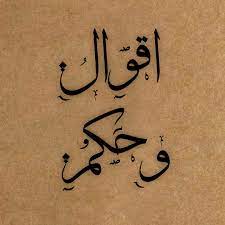 اقوال
وحكم